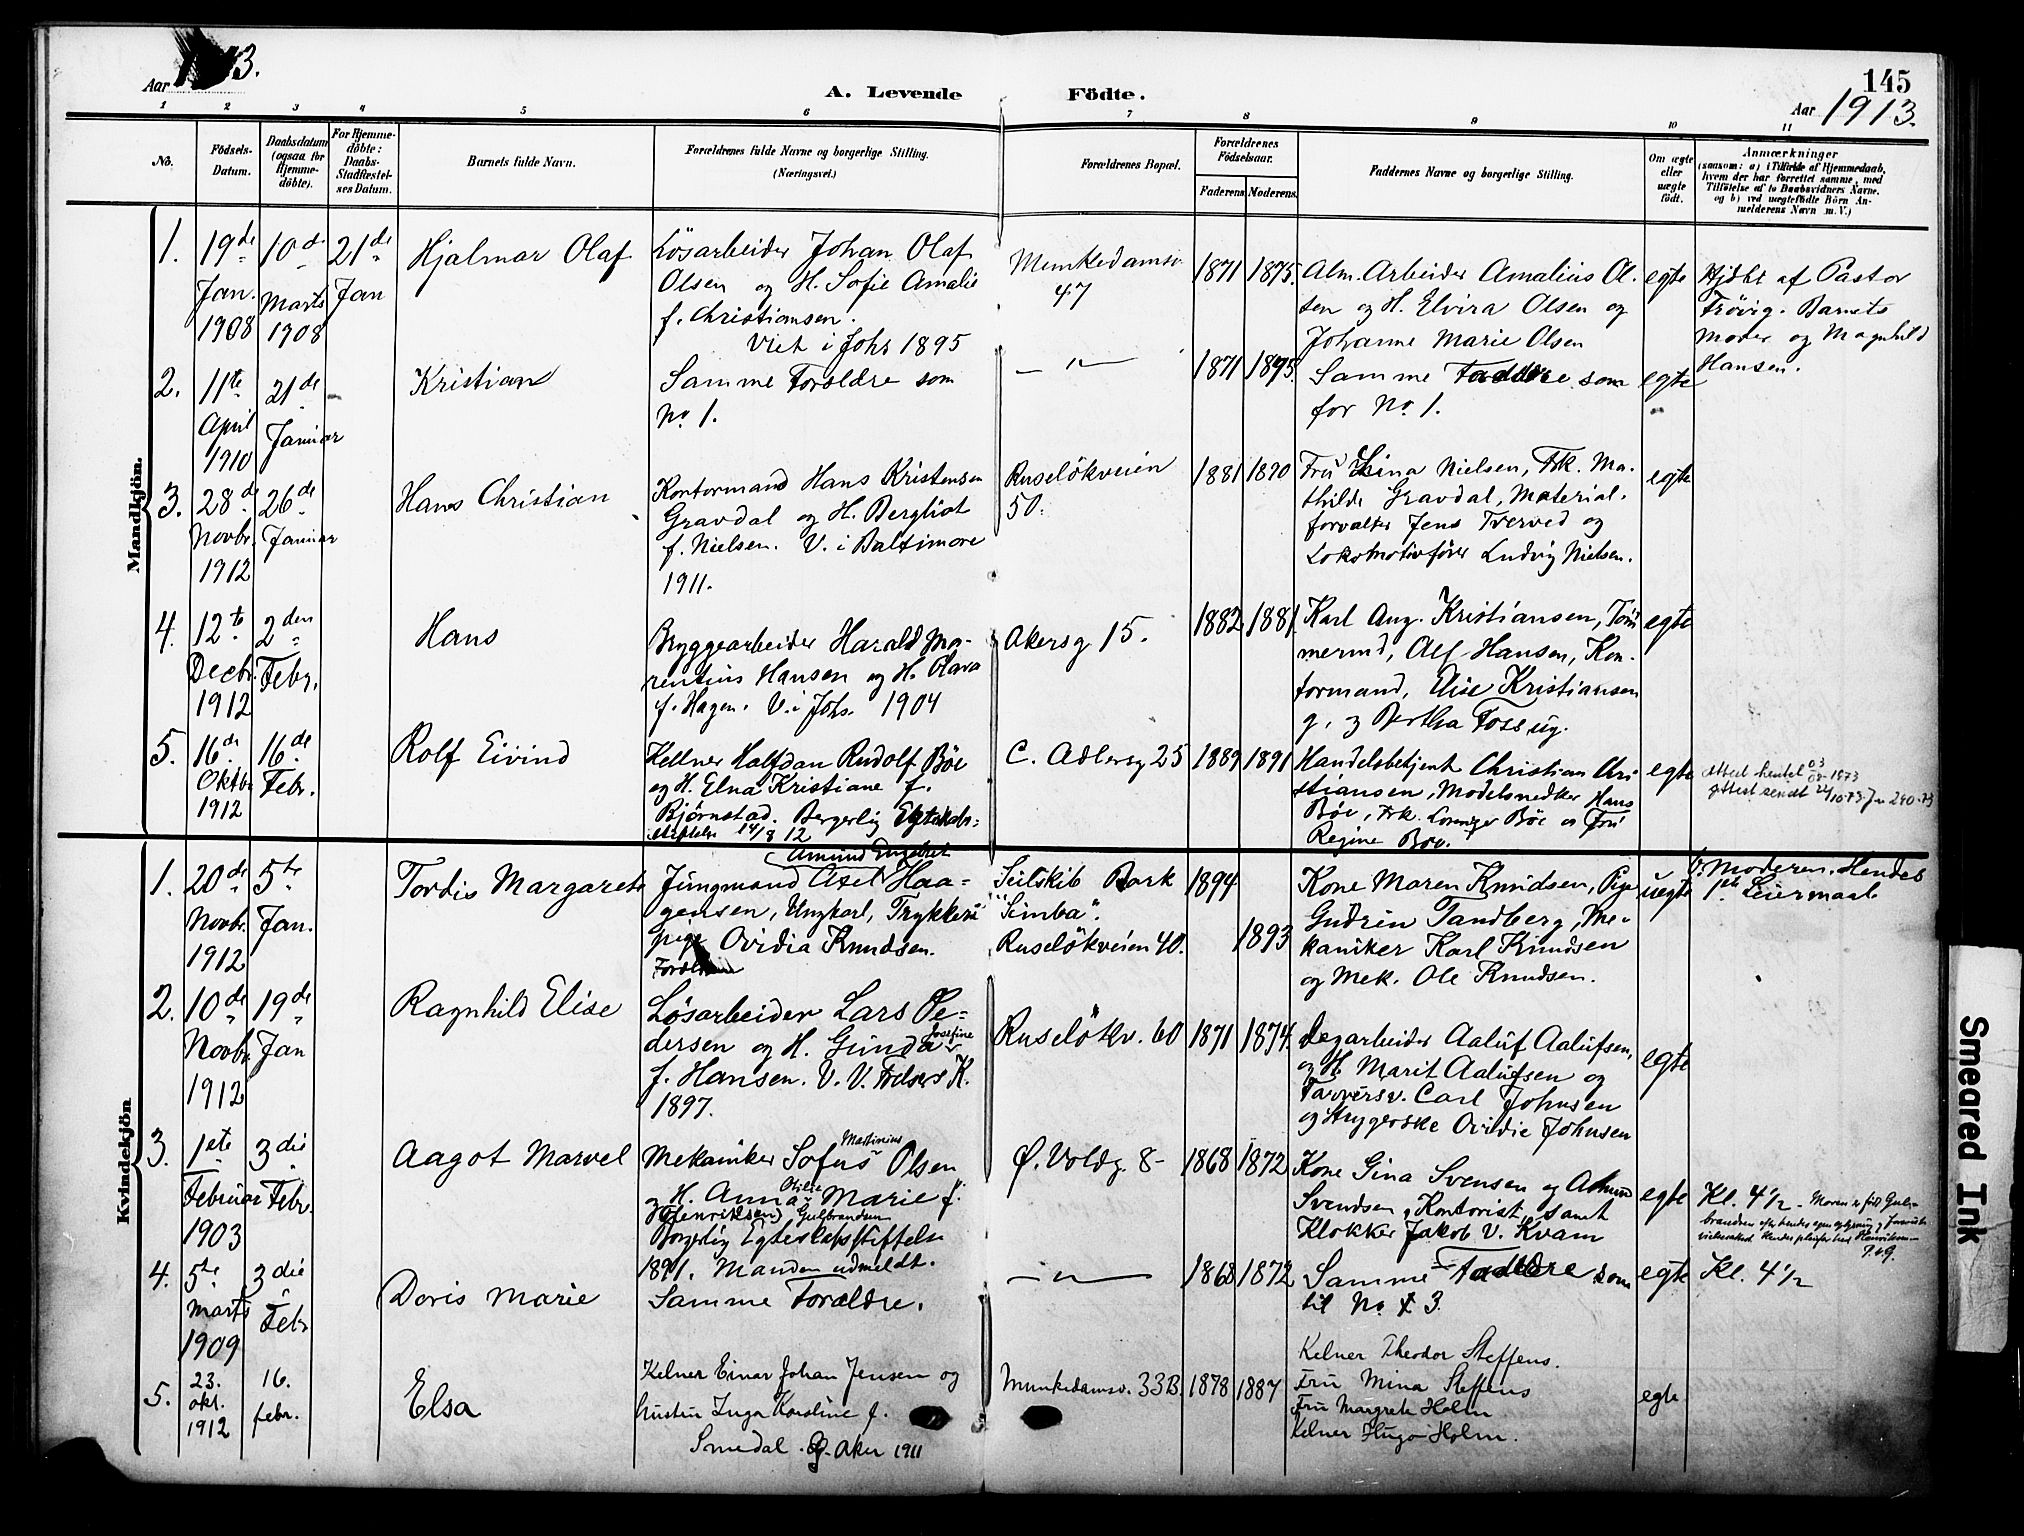 Aar 1913.
A. Levende Födte.
145
Aar 1913.
1 2 3 4 5 6 7 8 9 10 11
No.
Födsels-
Datum.
Daabsdatum
(ogsaa for
Hjemme-
döbte).
For Hjemme-
döbte:
Daabs-
Stadfæstel-
ses Datum.
Barnets fulde Navn.
Forældrenes fulde Navne og borgerlige Stilling.
(Næringsvei.)
Forældrenes Bopæl.
Forældrenes
Födselsaar.
Faderens. Moderens.
Faddernes Navne og borgerlige Stilling.
Om ægte
eller
uægte
födt.
Anmærkninger
(saasom: a) i Tilfælde af Hjemmedaab,
hvem der har forrettet samme, med
Tilföielse af to Daabsvidners Navne.
og b) ved uægtefödte Börn An-
melderens Navn m. V.)
Mandkjön.
1.
19de
Jan.
1908
10de
Marts
1908
21de
Jan
Hjalmar Olaf
Løsarbeider Johan Olaf
Olsen og H. Sofie Amalie
f. Christiansen.
Viet i Johs 1895
Munkedamsv.
47
1871
1875.
Alm. Arbeider Amalius Ol-
sen og H. Elvira Olsen og
Johanne Marie Olsen
egte
Hjdbt af Pastor
Frövig. Barnets
Moder og Magnhild
Hansen.
2.
11te
April
1910
21de
Januar
Kristian
Samme Forældre som
No 1.
— " —
1871
1875.
Samme Faddere som
for No 1.
egte
3.
28de
Novbr.
1912
26de
Januar
Hans Christian
Kontormand Hans Kristensen
Gravdal og H. Bergliot
f. Nielsen. V. i Baltimore
1911.
Ruselökveien
50.
1881
1890
Fru Lina Nielsen, Frk. Ma-
thilde Gravdal, Material-
forvalter Jens Tverved og
Lokomotivförer Ludvig Nielsen.
egte
4.
12te
Decbr.
1912
2den
Febr.
Hans
Bryggearbeider Harald Ma-
rentius Hansen og H. Olava
f. Hagen. V. i Johs. 1904
Akersg 15.
1882
1881.
Karl Aug. Kristiansen, Töm
mermd, Alf Hansen, Kon-
tormand, Elise Kristiansen
g. og Bertha Foss ug.
egte
5.
16de
Oktbr
1912
16de
Febr.
Rolf Eivind
Kellner Halfdan Rudolf Böe
og H. Elna Kristiane f.
Bjørnstad. Borgerlig Egteskabs-
stiftelse 14/8 12
C. Adlersg 25
1889
1891
Handelsbetjent Christian Chri
stiansen, Modelsnedker Hans
Böe, Frk. Böe og Fru
Regine Böe.
egte
Attest sendt
Kvindekjön
1.
20de
Novbr.
1912
5te
Jan.
Tordis Margarete
Amund Engebret
Jungmand Axel Haa-
gensen, Ungkarl, Trykkeri
pige Ovidia Knudsen.
Seilskib Bark
"Simba".
Ruselökveien 40.
1894
1893
Kone Maren Knudsen, Pige
Gudrun Tandberg, Me-
kaniker Karl Knudsen
og Mek. Ole Knudsen.
uegte
v. Moderen. Hendes
1ste Leiermaal
2.
10de
Novbr
1912
19de
Jan
Ragnhild Elise
Løsarbeider Lars Pe-
dersen og H. Gunda Josefine
f. Hansen. V. V. Frelsers K.
1897.
Ruselökv. 60
1871
1874.
Legarbeider Aaluf Aalufsen,
og H. Marit Aalufsen og
Carl Johnsen
og Strygerske Ovidie Johnsen
egte
3.
1ste
Februar
1903
3die
Febr.
Aagot Marvel
Mekaniker Sofus Martinius Olsen
og H. Anna Otilie Marie f.
(Henriksen) Gulbrandsen
Borgerlig Egteskabsstiftelse
1891. Manden udmeldt.
Ø. Voldg. 8-
1868
1872
Kone Gina Svensen og Amund
Svendsen, Kontorist, samt
Klokker Jakob V. Kvam
egte
Kl. 4½ - Moren er född Gul-
brandsen efter hendes egen
Henriksen
4.
5te
Marts
1909
3die
Febr
Doris Marie
Samme Forældre.
— " —
1868
1872
Samme Faddere som
til No 3.
egte
Kl. 4½
5.
23.
okt.
1912
16.
febr.
Elsa
Kelner Einar Johan Jensen og
hustru Inga Karoline f.
Smedal. Aker 1911
Munkedamsv. 33B.
1878
1887
Kelner Theodor Steffens.
Fru Mina Steffens
Fru Margrete Holm
Kelner Hugo Holm.
egte
Smeared Ink